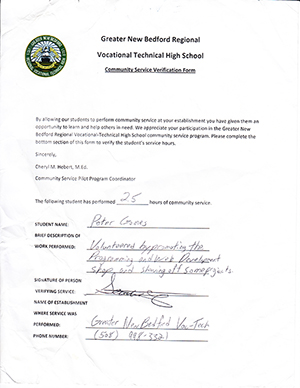 Greater New Bedford Regional
Vocational Technical High School
Community Service Verification Form
By allowing our students to perform community service at your establishment you have given them an
opportunity to learn and help others in need. We appreciate your participation in the Greater New
Bedford Regional Vocational-Technical High School community service program. Please complete the
bottom section of this form to verify the student's service hours.
Sincerely,
Cheryl M. Hebert, M.Ed.
Community Service Pilot Program Coordinator
The following student has performed 25 hours of community service:
STUDENT NAME: Peter
BRIEF DESCRIPTION OF
WORK PERFORMED: Volunteered by promoting the
Programming and Web Development
shop and showing off some projects.
SIGNATURE OF PERSON
VERIFYING SERVICE:
NAME OF ESTABLISHMENT
WHERE SERVICE WAS
PERFORMED: Greater New Bedford Voc-Tech
PHONE NUMBER: (508) 998-3321